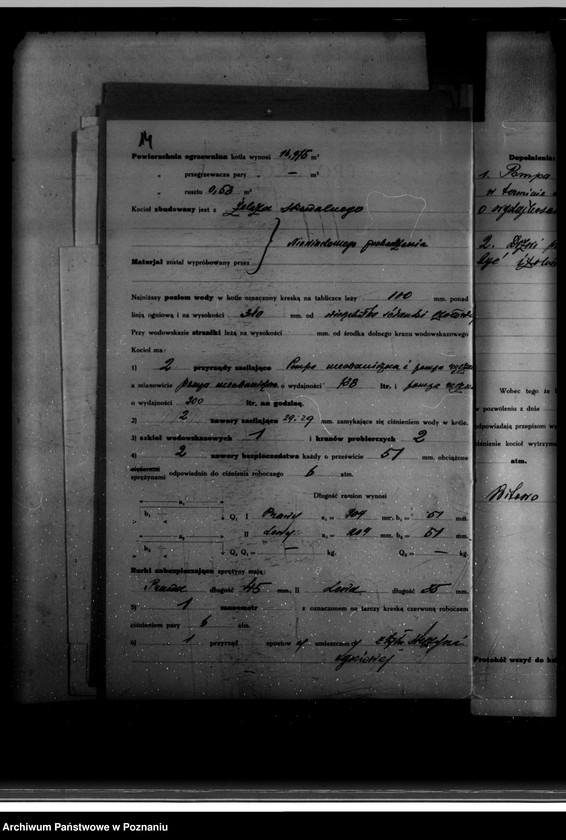 Powierzchnia ogrzewalna kotła wynosi 14,975 m²
„ przegrzewacza pary „ — m²
„ rusztu 0,53 m²
Kocioł zbudowany jest z żelaza
Niewiadomego pochodzenia
Materjał został wypróbowany przez
Najniższy poziom wody w kotle oznaczony kreską na tabliczce leży 100 mm. ponad
linją ogniową i na wysokości 310 mm. od
Przy wodowskazie strzałki leżą na wysokości mm. od środka dolnego kranu wodowskazowego
Kocioł ma:
1) 2 przyrządy zasilające Pompa mechaniczna i pompa
a mianowicie o wydajności ltr. i pompa
o wydajności 200 ltr. na godzinę.
2) 2 zawory zasilające 29.29 mm. zamykające się ciśnieniem wody w kotle.
3) szkieł wodowskazowych 1 i kranów probierczych 2
4) 2 zawory bezpieczeństwa każdy o prześwicie 51 mm. obciążone
ciężarami
sprężynami odpowiednio do ciśnienia roboczego 6 atm.
Długość ramion wynosi
a₁ Q₁ I Prawy a₁ = 209 mm. b₁ = 51 mm.
b₁
a₂ II Lewy a₂ = 209 mm. b₂ = 51 mm.
b₂ Q₂ Q₁ = — kg. Q₂ = — kg.
Rurki zabezpieczające sprężyny mają:
Prawa długość 45 mm. II Lewa długość 55 mm.
5) 1 manometr z oznaczonem na tarczy kreską czerwoną roboczem
ciśnieniem pary 6 atm.
6) 1 przyrząd umieszczony
Dopełnienia:
1. Pompa
w terminie
o wydajności
2.
być
Wobec tego że
w pozwoleniu z dnia
odpowiadają przepisom
ciśnienie kocioł wytrzyma
atm.
Protokół wszyć do
Archiwum Państwowe w Poznaniu